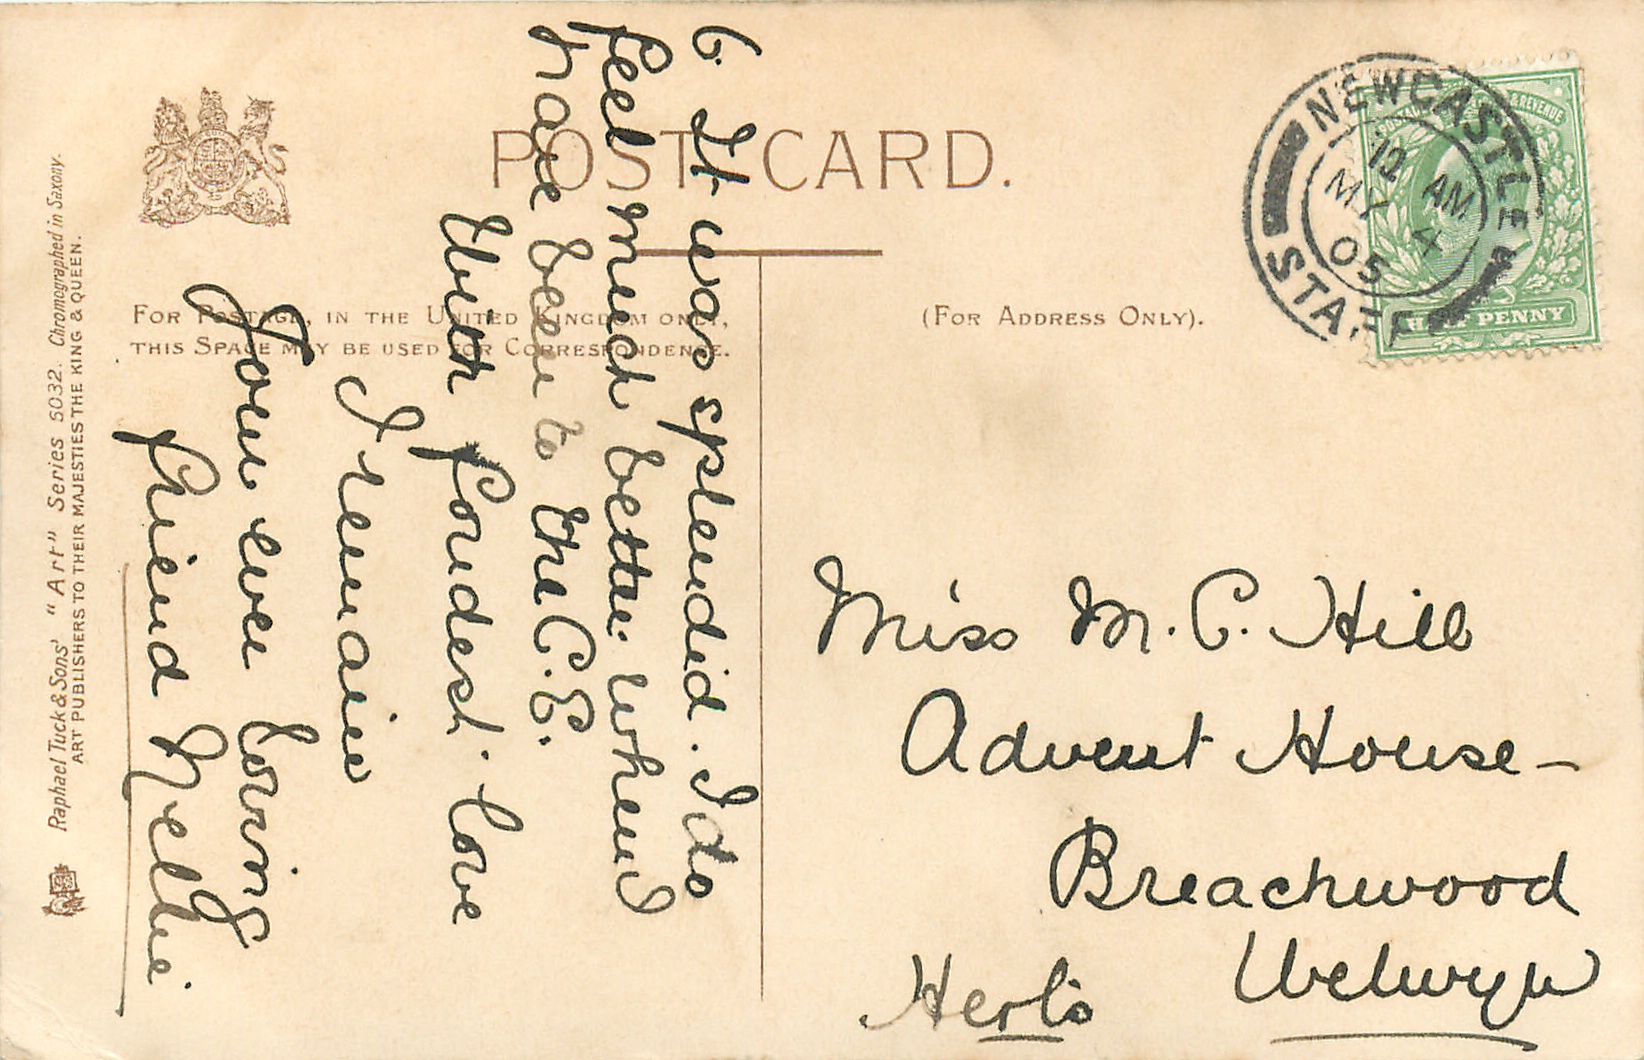 POST CARD.
FOR POSTAGE, IN THE UNITED KINGDOM ONLY,
THIS SPACE MAY BE USED FOR CORRESPONDENCE.
(FOR ADDRESS ONLY).
Raphael Tuck & Sons' "Art" Series 5032. Chromographed in Saxony.
ART PUBLISHERS TO THEIR MAJESTIES THE KING & QUEEN.
6. It was splendid. I do
feel much better when I
have been to the C.E.
With fondest love
I remain
Your ever loving
friend Nellie.
NEWCASTLE
STAFF
12 AM
MY 4
05
POSTAGE & REVENUE
HALF PENNY
Miss M. C. Hill
Advent House -
Breachwood
Welwyn
Herts